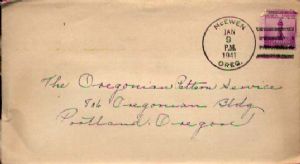 McEWEN
JAN
9
P.M.
1941
OREG.
The Oregonian Pattern Service
816 Oregonian Bldg
Portland, Oregon